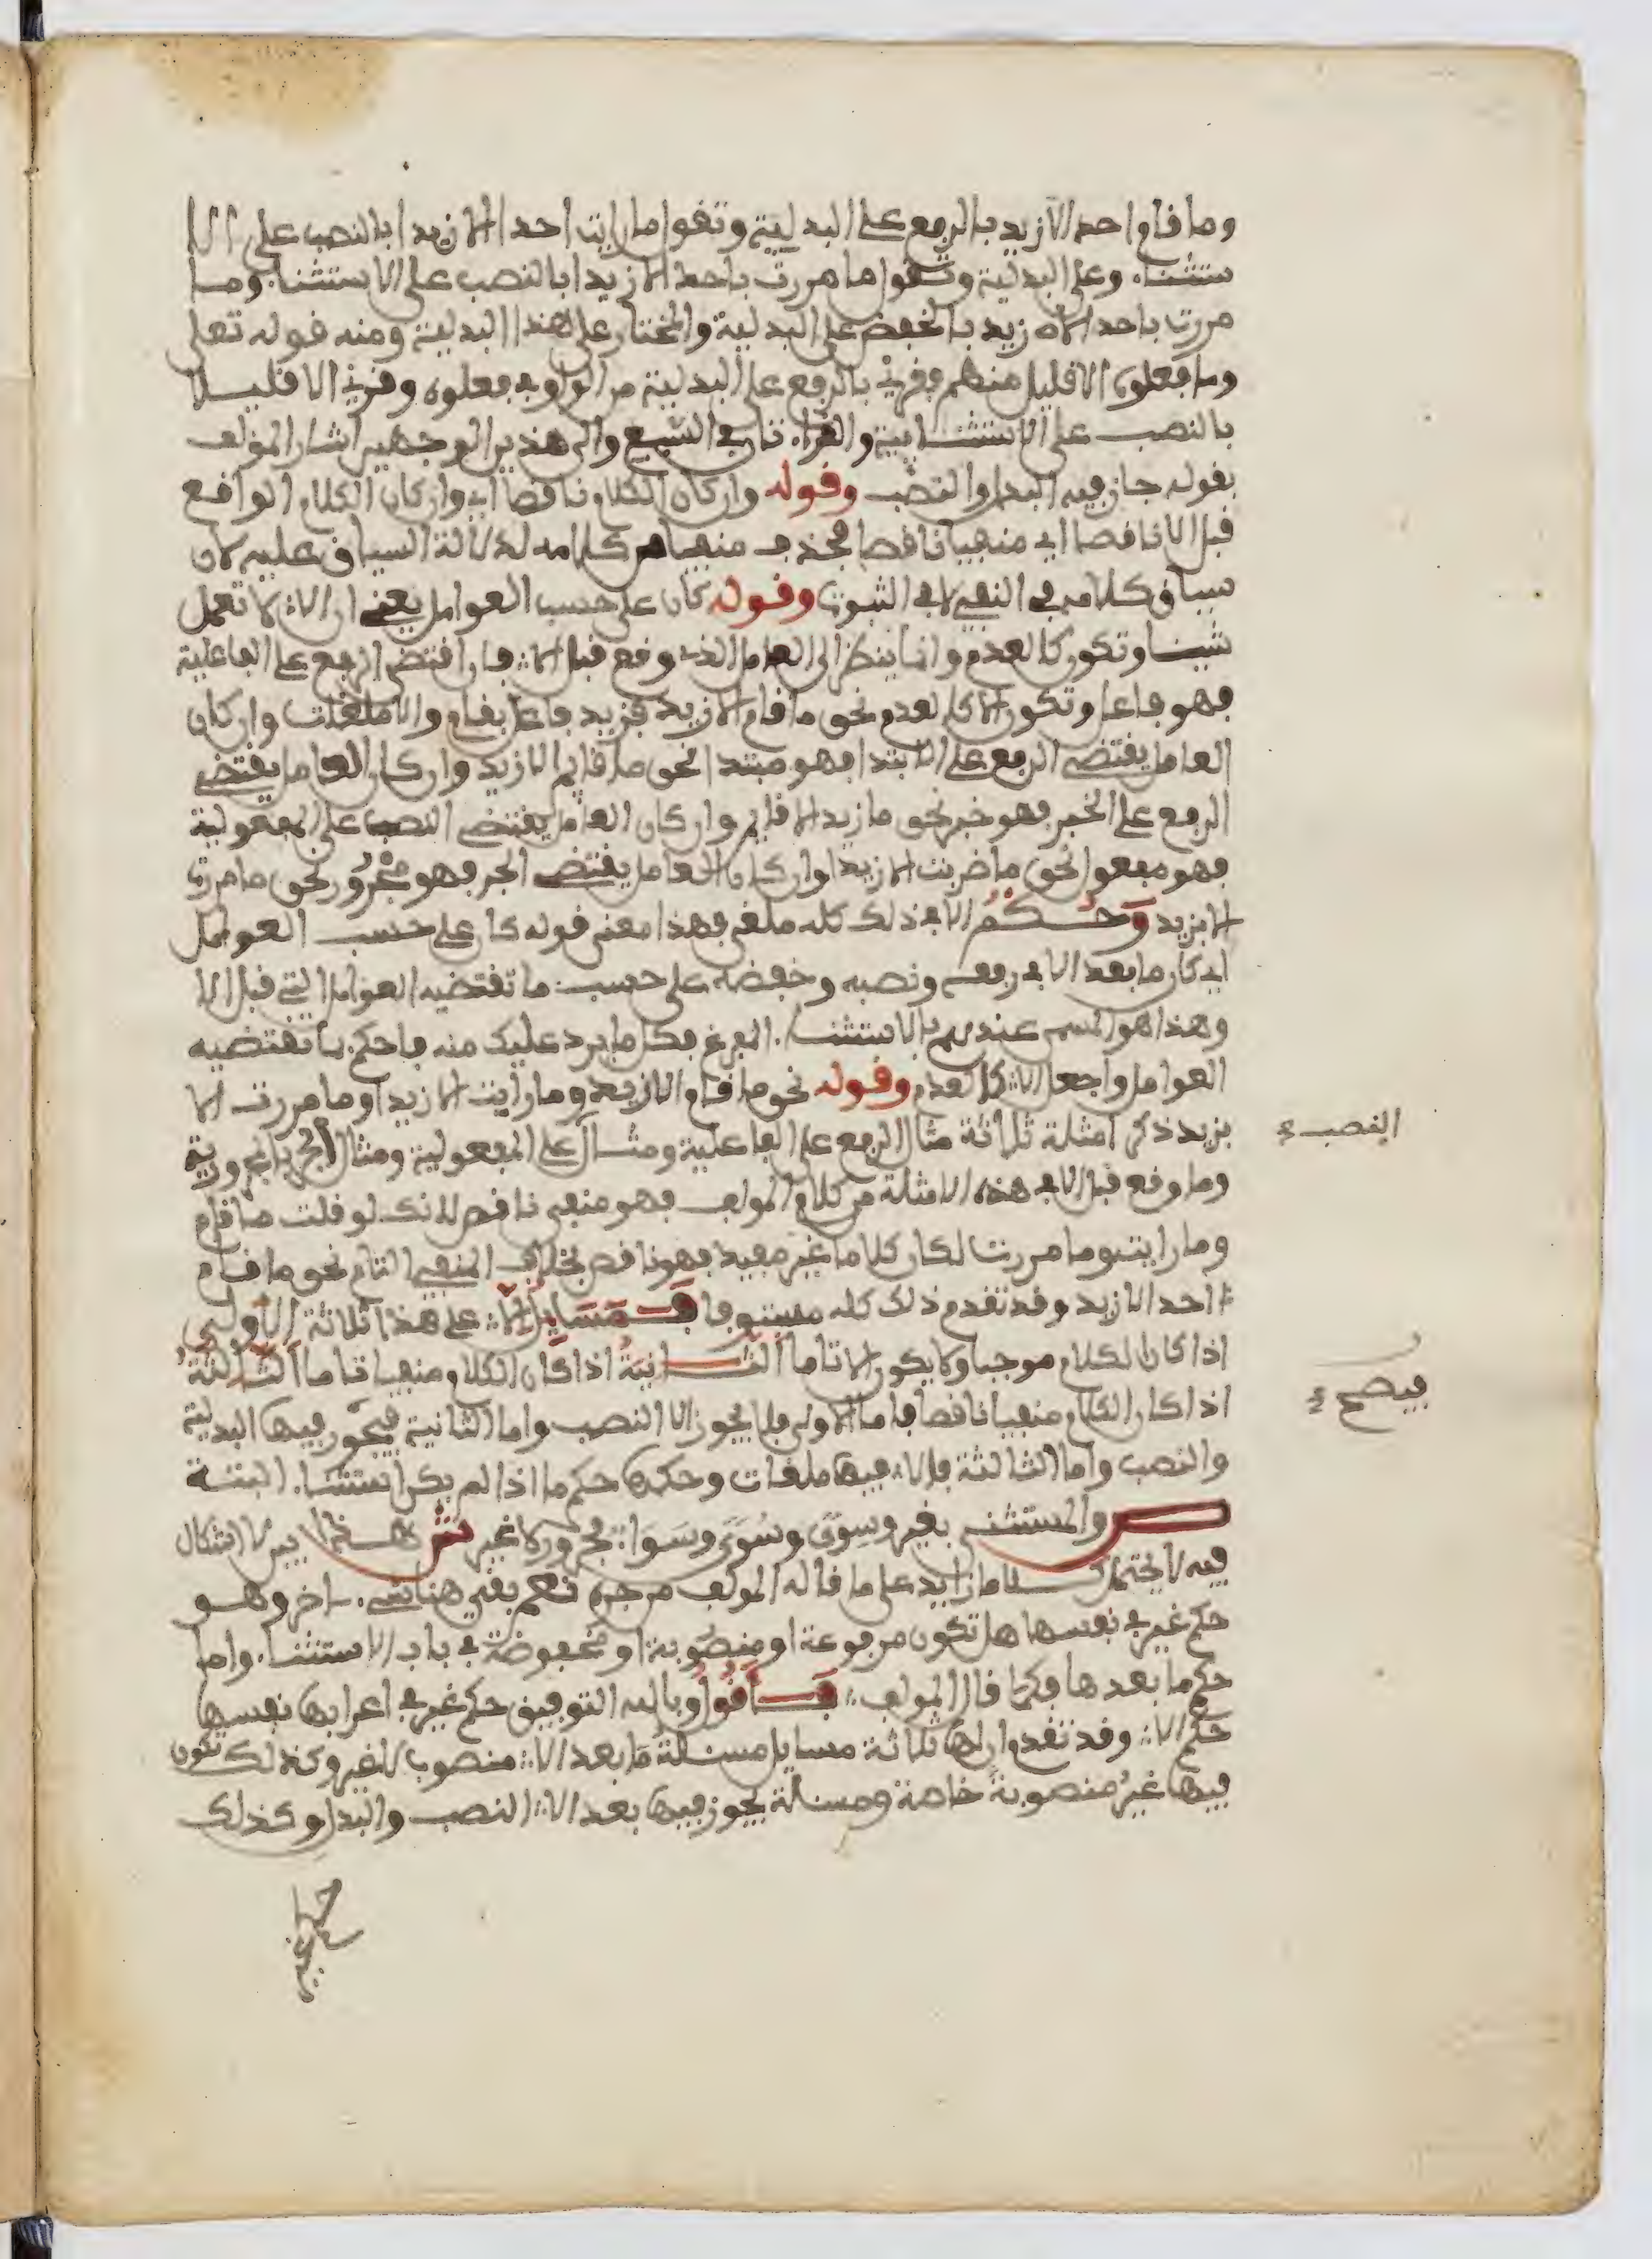 وما قام احد الا زيد بالرفع على البدلية وتقول ما رايت احدا الا زيدا بالنصب على الا
ستثناء وعلى البدلية وتقول ما مررت باحد الا زيدا بالنصب على الاستثناء وما
مررت باحد الا زيد بالخفض على البدلية والمختار على هذا البدلية ومنه قوله تعلى
وما فعلوه الا قليل منهم فقرئ بالرفع على البدلية من الواو في فعلوه وقرئ الا قليلا
بالنصب على الاستثنائية والقراءتان في السبع والى هذين الوجهين اشار المؤلف
بقوله جاز فيه البدل والنصب وقوله وان كان الكلام ناقصا اي وان كان الكلام الواقع
قبل الا ناقصا اي منفيا ناقصا فحذف منفيا من كلامه لدلالة السياق عليه لان
سياق كلامه في النفي لا في الثبوت وقوله كان على حسب العوامل يعني ان الا لا تعمل
شيئا وتكون كالعدم وانما ينظر الى العامل الذي وقع قبل الا فان اقتضى الرفع على الفاعلية
فهو فاعل وتكون الا كالعدم نحو ما قام الا زيد فزيد فاعل بقام والا ملغات وان كان
العامل يقتضي الرفع على الابتداء فهو مبتدا نحو ما قايم الا زيد وان كان العامل يقتضي
الرفع على الخبر فهو خبر نحو ما زيد الا قايم وان كان العامل يقتضي النصب على المفعولية
فهو مفعول نحو ما ضربت الا زيدا وان كان العامل يقتضي الجر فهو مجرور نحو ما مررت
الا بزيد وحكم الا في ذلك كله ملغى فهذا معنى قوله كان على حسب العوامل
اي كان ما بعد الا في رفعه ونصبه وخفضه على حسب ما تقتضيه العوامل التي قبل الا
وهذا هو المسمى عندهم بالاستثناء المفرغ فكل ما يرد عليك منه فاحكم بما تقتضيه
العوامل واجعل الا كالعدم وقوله نحو ما قام الا زيد وما رايت الا زيدا وما مررت الا
بزيد ذكر امثلة ثلاثة مثال الرفع على الفاعلية ومثال على المفعولية ومثال الجر بالمجرورية
النصب
وما وقع قبل الا في هذه الامثلة من كلام المولف فهو منفي ناقص لانك لو قلت ما قام
وما رايت وما مررت لكان كلاما غير مفيد فهو ناقص بخلاف المنفي التام نحو ما قام
احد الا زيد وقد تقدم ذلك كله مستوفا فمسايل الا على هذا ثلاثة الاولى
اذا كان الكلام موجبا ولا يكون الا تاما الثانية اذا كان الكلام منفيا تاما الثالثة
فيصح
اذا كان الكلام منفيا ناقصا فاما الاولى فلا يجوز الا النصب واما الثانية فيجوز فيها البدلية
والنصب واما الثالثة فالا فيها ملغات وحكمها حكم ما اذا لم يكن استثناء البتة
ص والمستثنى بغير وسوى وسوى وسواء مجرور لا غير ش هذا بين لا اشكال
فيه لا يحتمل كلاما زايد على ما قاله المولف من جره نعم بقي هنا شيء اخر وهو
حكم غير في نفسها هل تكون مرفوعة او منصوبة او مخفوضة في باب الاستثناء واما
حكم ما بعدها فكما قال المولف فاقول وبالله التوفيق حكم غير في اعرابها نفسها
حكم الا وقد تقدم ان لها ثلاثة مسايل مسئلة ما بعد الا منصوب لا غير وكذلك تكون
فيها غير منصوبة خاصة ومسئلة يجوز فيها بعد الا النصب والبدل وكذلك